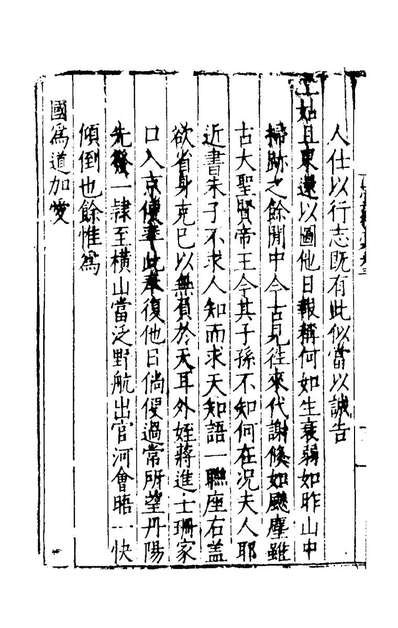 人仕以行志既有此似當以誠告
上如且東還以圖他日報稱何如生衰弱如昨山中
掃跡之餘閒中今古見往來代謝倏如飈塵雖
古大聖賢帝王今其子孫不知何在况夫人耶
近書朱子不求人知而求天知語一聯座右盖
欲省身克己以無負於天耳外姪蔣進士珊家
口入京便率此奉復他日倘侵過常所望丹陽
先發一隷至橫山當泛野航出官河會晤一快
傾倒也餘惟為
國為道加愛